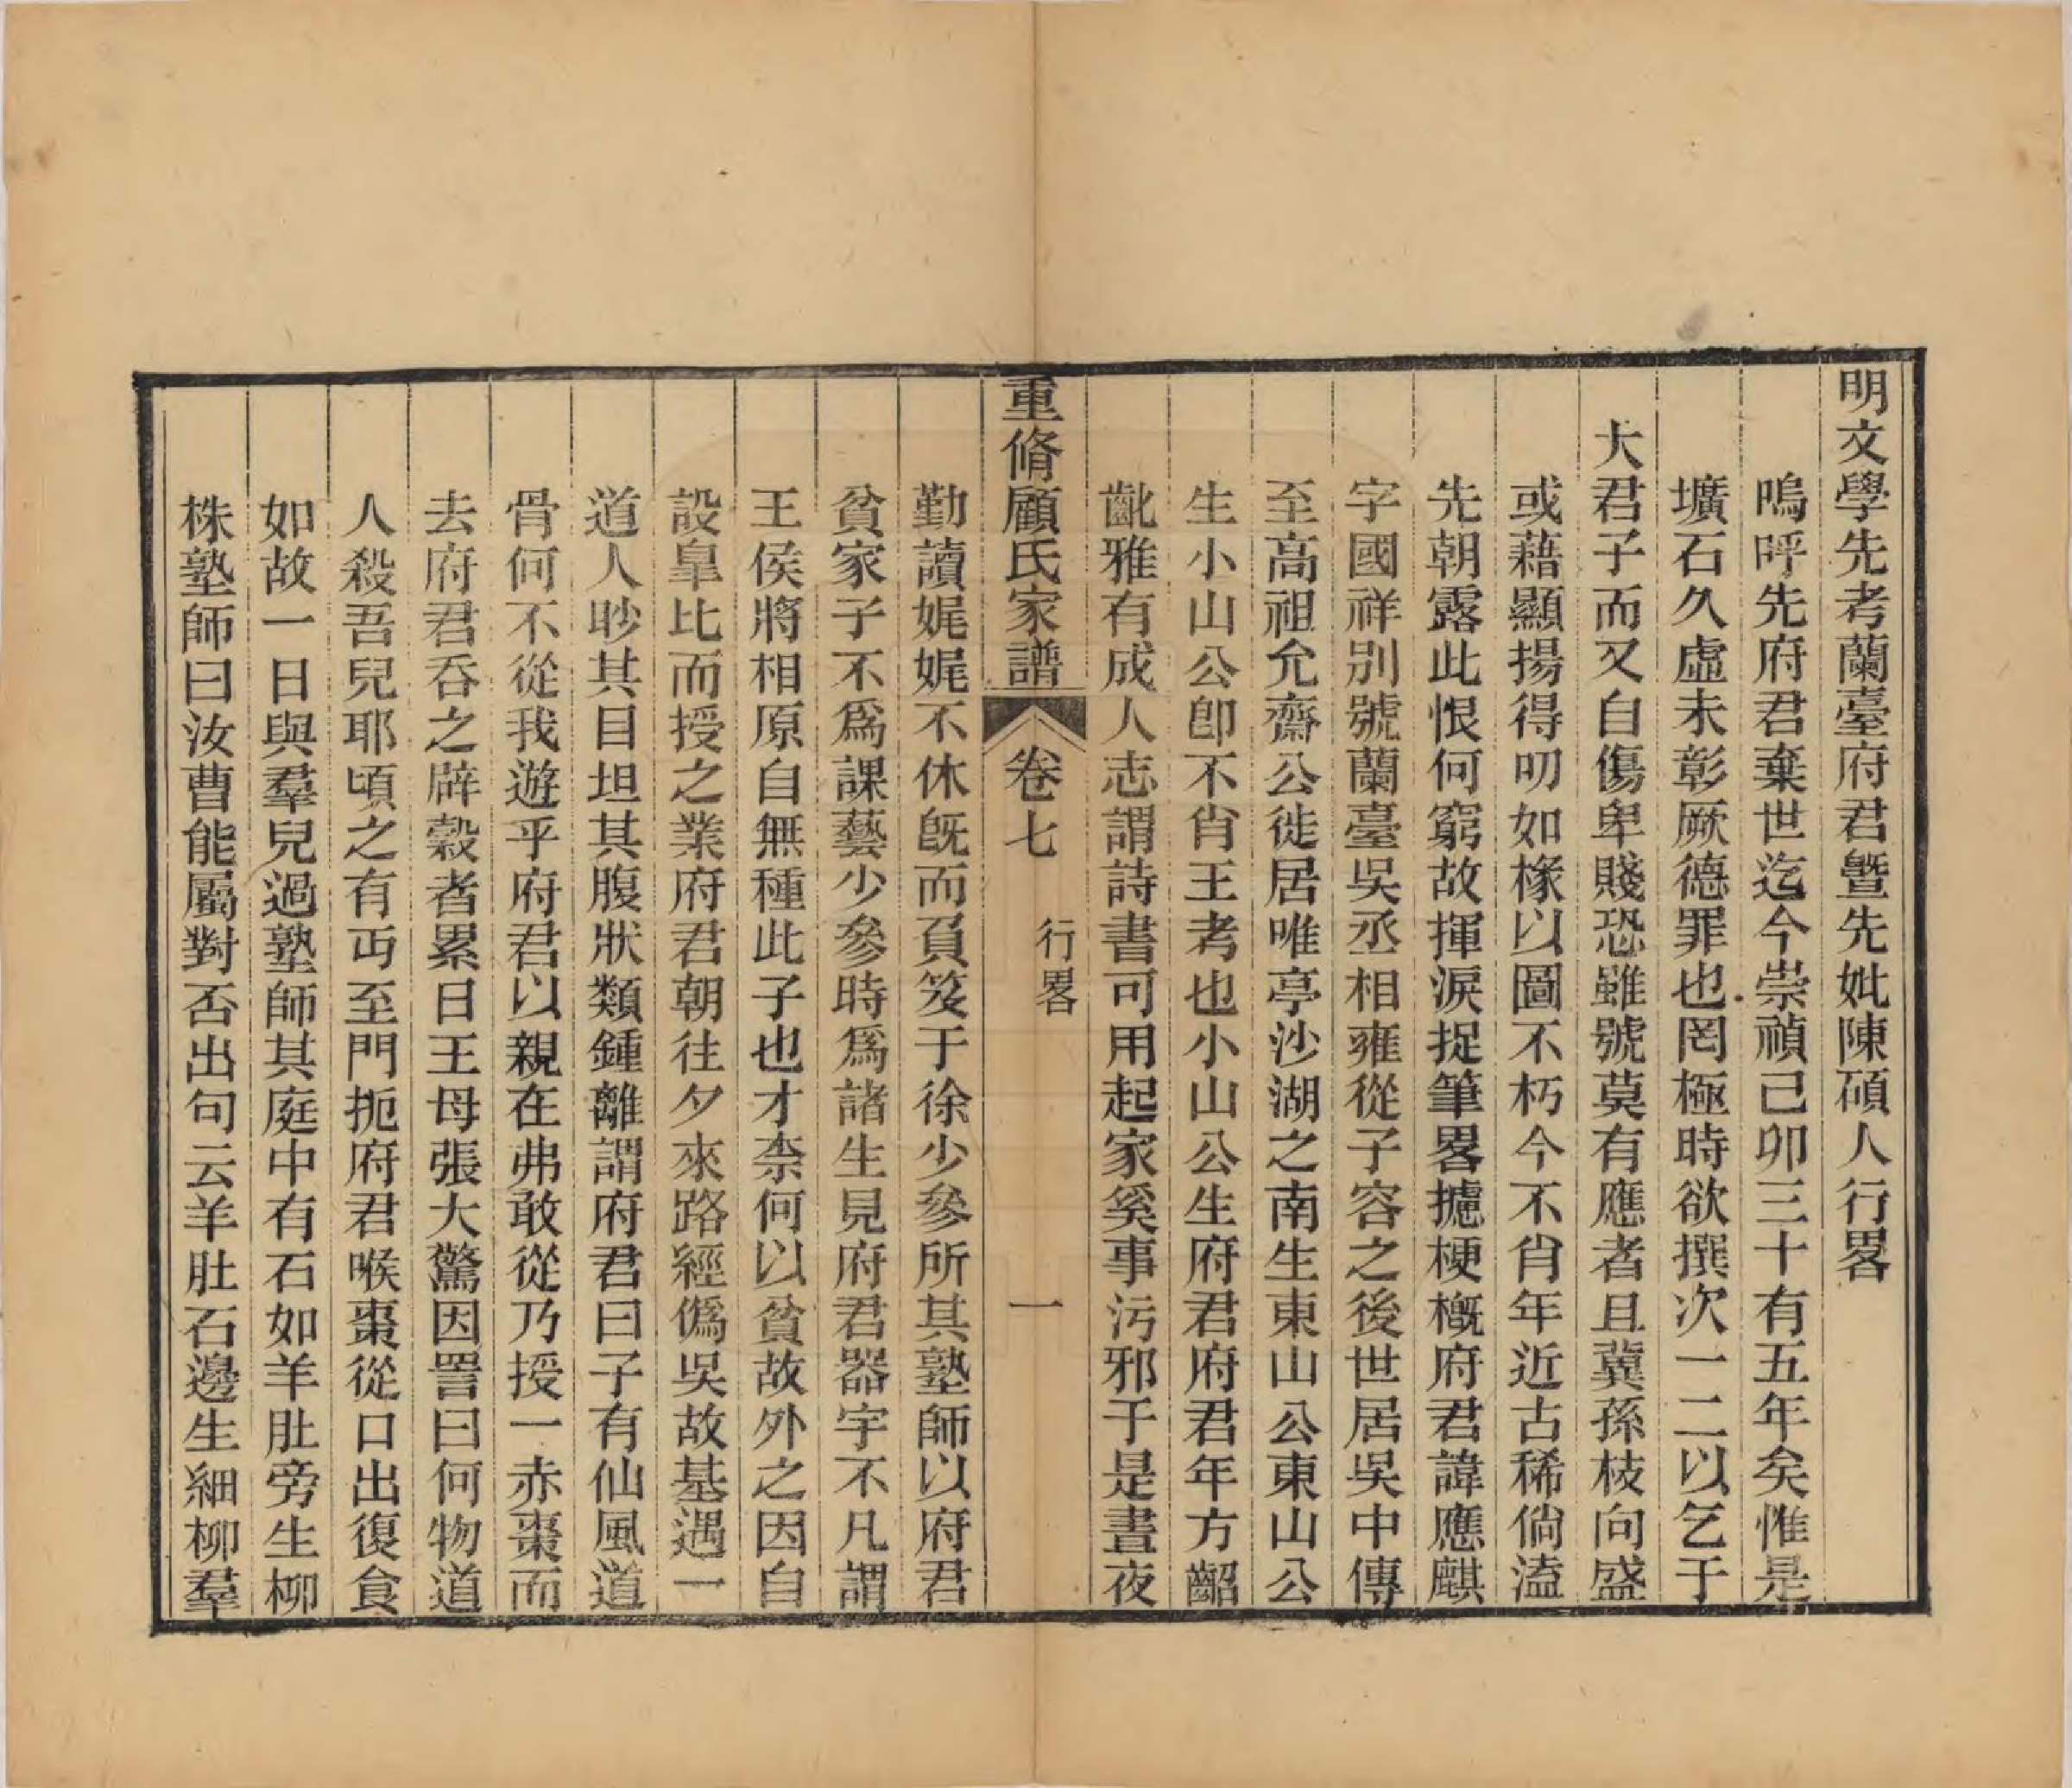 明文學先考蘭臺府君曁先妣陳碩人行畧
嗚呼先府君棄世迄今崇禎己卯三十有五年矣惟是
壙石久虛未彰厥德罪也罔極時欲撰次一二以乞于
大君子而又自傷卑賤恐雖號莫有應者且冀孫枝向盛
或藉顯揚得叨如椽以圖不朽今不肖年近古稀倘溘
先朝露此恨何窮故揮淚捉筆畧攄梗槪府君諱應麒
字國祥別號蘭臺吳丞相雍從子容之後世居吳中傳
至高祖允齋公徙居唯亭沙湖之南生東山公東山公
生小山公卽不肖王考也小山公生府君府君年方齠
齔雅有成人志謂詩書可用起家奚事污邪于是晝夜
重脩顧氏家譜
卷七
行畧
一
勤讀娓娓不休旣而負笈于徐少參所其塾師以府君
貧家子不爲課藝少參時爲諸生見府君器宇不凡謂
王侯將相原自無種此子也才柰何以貧故外之因自
設皐比而授之業府君朝往夕來路經僞吳故基遇一
道人眇其目坦其腹狀類鍾離謂府君曰子有仙風道
骨何不從我遊乎府君以親在弗敢從乃授一赤棗而
去府君吞之辟穀者累日王母張大驚因詈曰何物道
人殺吾兒耶頃之有丐至門扼府君喉棗從口出復食
如故一日與羣兒過塾師其庭中有石如羊肚旁生柳
株塾師曰汝曹能屬對否出句云羊肚石邊生細柳羣